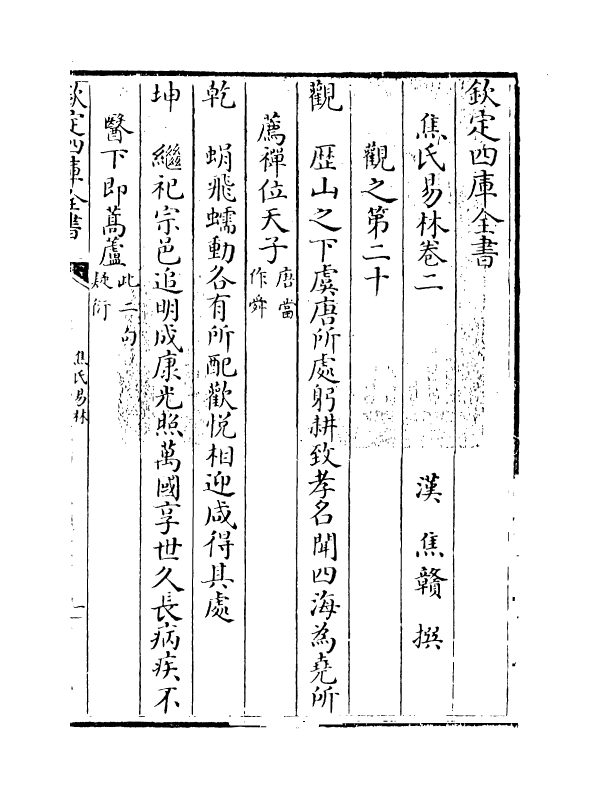 欽定四庫全書
焦氏易林卷二
漢 焦贛 撰
觀之第二十
觀 歴山之下虞唐所處躬耕致孝名聞四海為堯所
薦禪位天子唐當作舜
乾 蜎飛蠕動各有所配歡悦相迎咸得其處
坤 繼祀宗邑追明成康光照萬國享世久長病疾不
醫下即蒿廬此二句疑衍
欽定四庫全書
焦氏易林
一